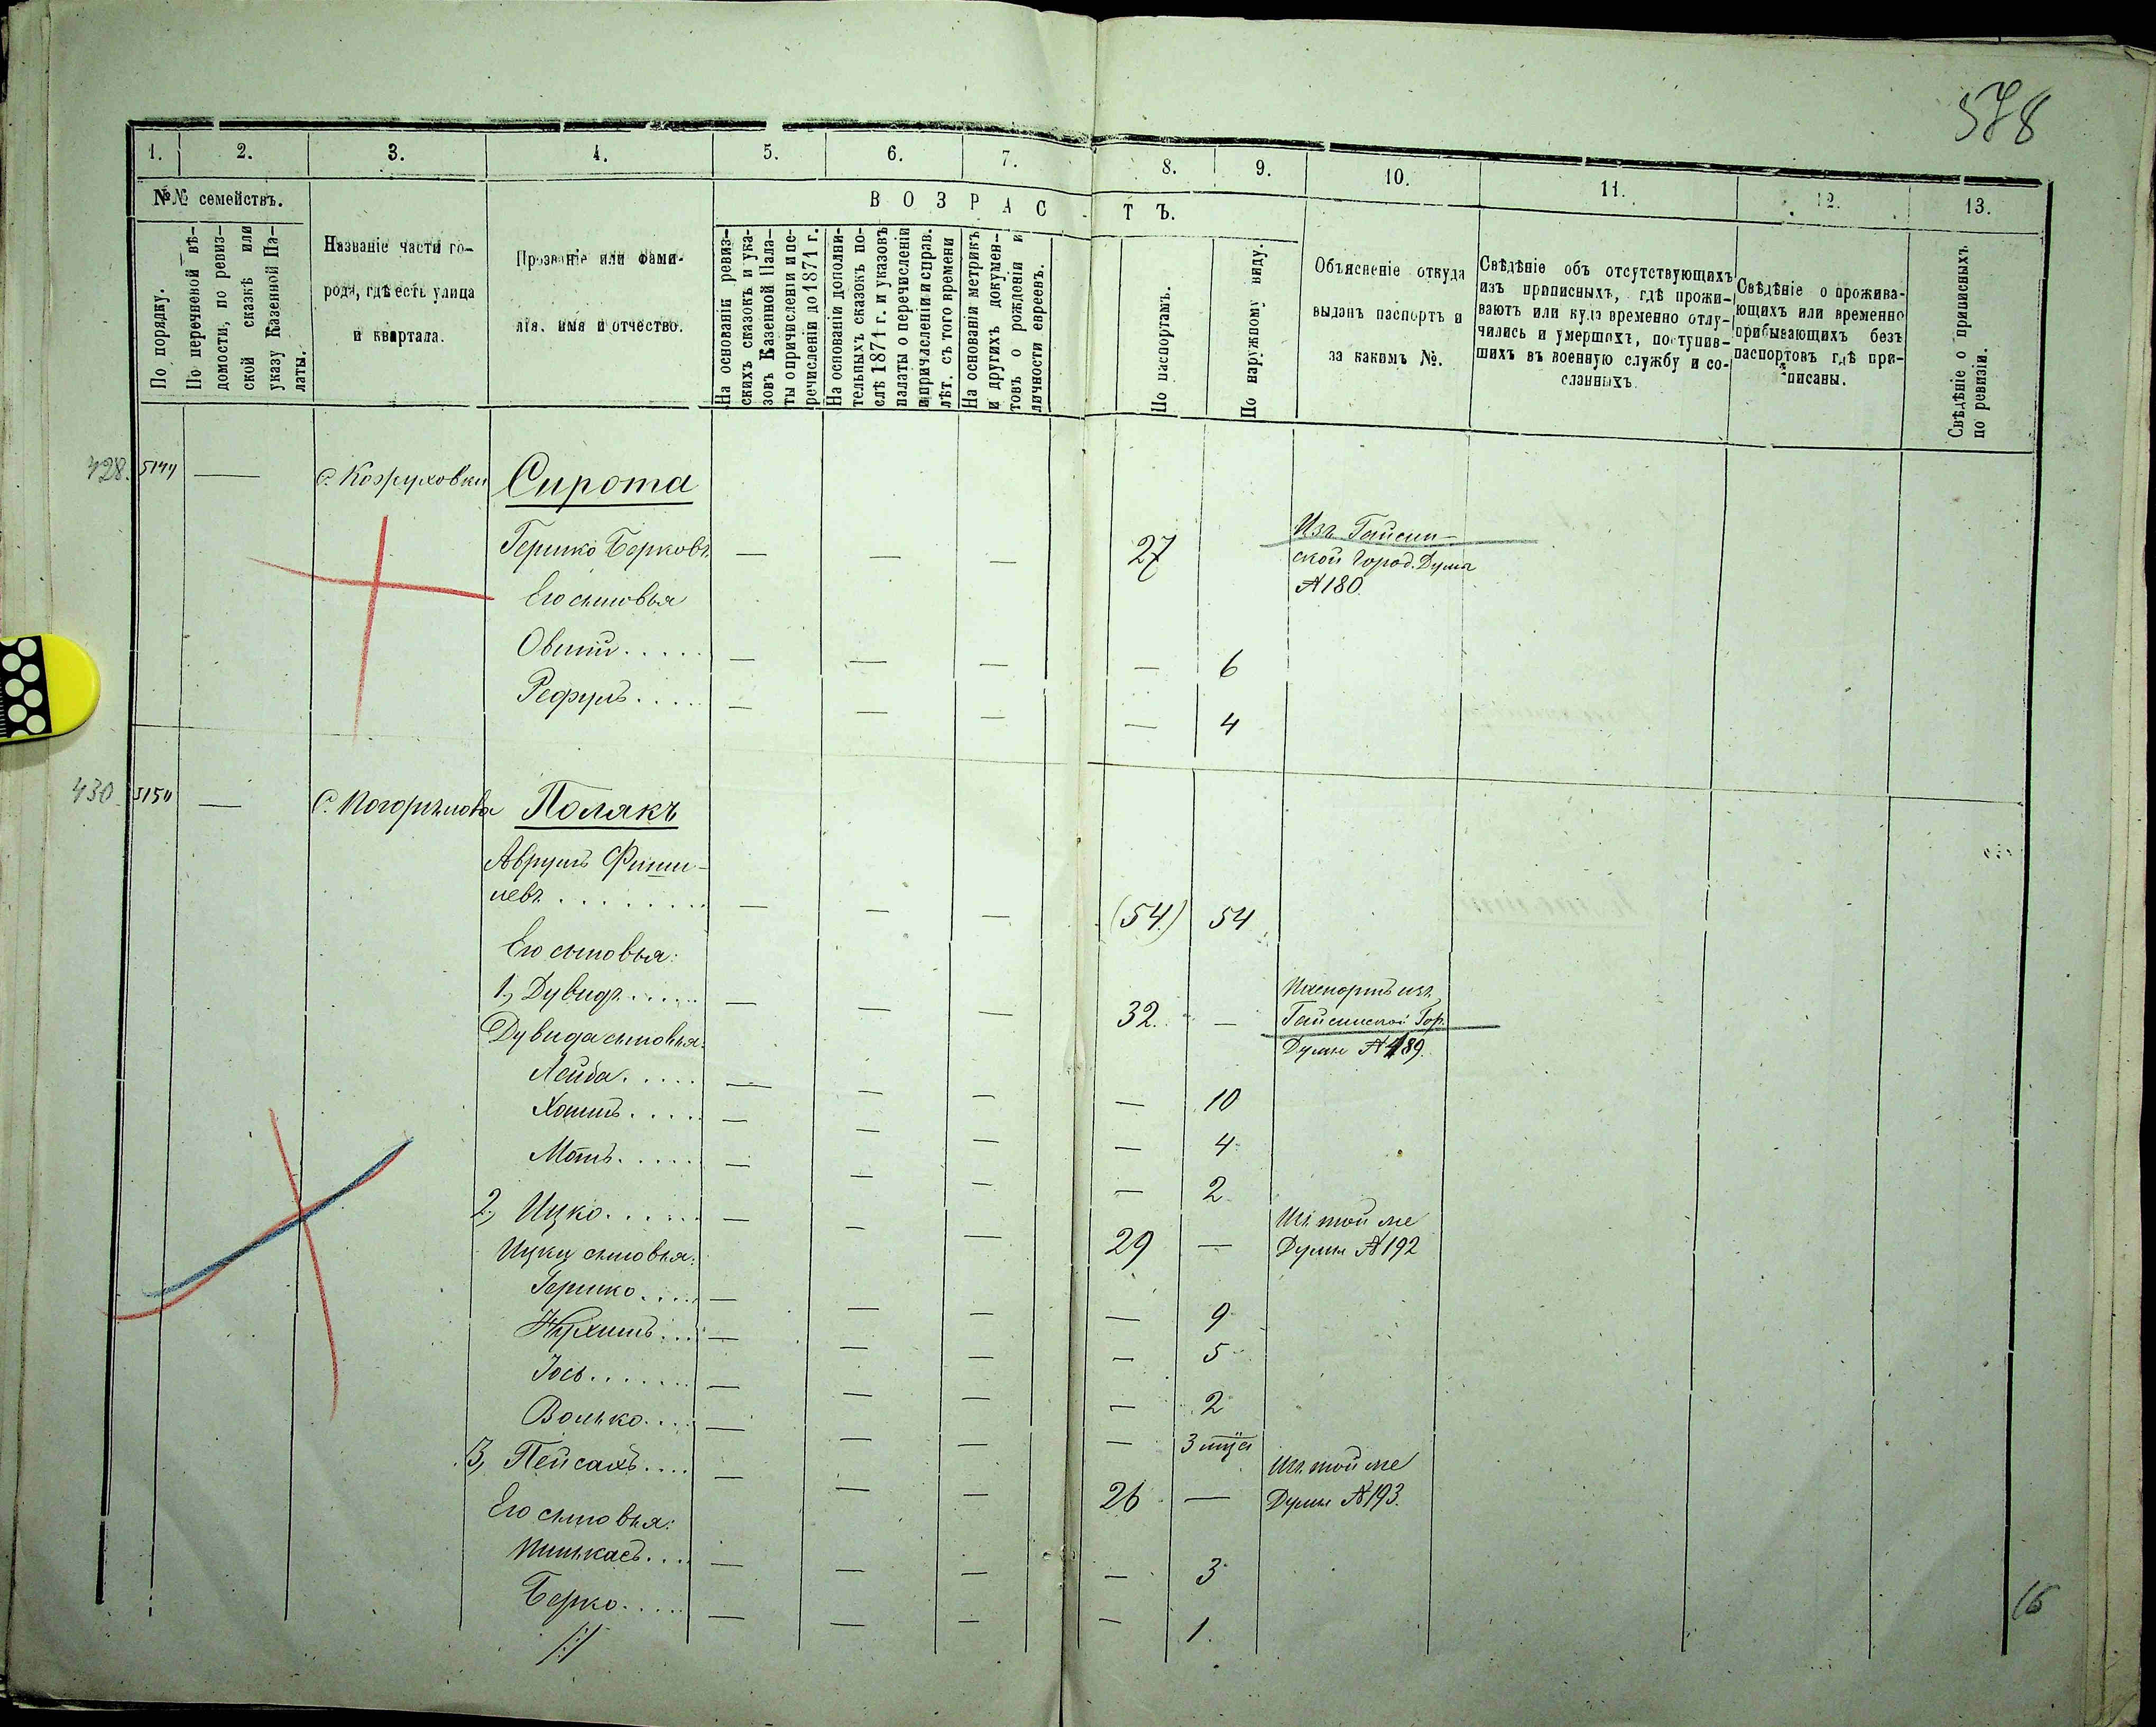 578
1. 2. 3. 4. 5. 6. 7. 8. 9. 10. 11. 12. 13.
№№ семействъ.
ВОЗРАСТЪ.
По порядку.
По перечневой вѣ-
домости, по ревиз-
ской сказкѣ или
указу Казенной Па-
латы.
Названіе части го-
рода, гдѣ есть улица
и квартала.
Прозваніе или фами-
лія, имя и отчество.
На основаніи ревиз-
скихъ сказокъ и ука-
зовъ Казенной Пала-
ты о причисленіи и пе-
речисленіи до 1871 г.
На основаніи дополни-
тельныхъ сказокъ по-
слѣ 1871 г. и указовъ
палаты о перечисленіи
и причисленіи и справ.
лѣт. съ того времени
На основаніи метрикъ
и другихъ докумен-
товъ о рожденіи и
личности евреевъ.
По паспортамъ.
По наружному виду.
Объясненіе откуда
выданъ паспортъ и
за какимъ №.
Свѣдѣніе объ отсутствующихъ
изъ приписныхъ, гдѣ прожи-
ваютъ или куда временно отлу-
чились и умершихъ, поступив-
шихъ въ военную службу и со-
сланныхъ.
Свѣдѣніе о прожива-
ющихъ или временно
прибывающихъ безъ
паспортовъ гдѣ при-
писаны.
Свѣдѣніе о приписныхъ
по ревизіи.
428. 5149 — С. Кожуховки Сирота
Гершко Берковъ — — — 27
Изъ Гайсин-
ской Город. Думы
№ 180
Его сыновья
Овшій..... — — — — 6
Рефулъ.... — — — — 4
430. 5150 — С. Погорѣлова Полякъ
Аврумъ Фиши-
левъ....... — — — (54) 54
Его сыновья:
1, Дувидъ..... — — — 32. —
Паспортъ изъ
Гайсинской Гор.
Думы № 189.
Дувида сыновья:
Лейба..... — — — — 10
Хаимъ..... — — — — 4
Мотъ..... — — — — 2
2, Ицко...... — — — 29 —
Изъ той же
Думы № 192
Ицки сыновья:
Гершко.... — — — — 9
Нухимъ... — — — — 5
Іось....... — — — — 2
Волько.... — — — — 3 мѣся
3, Пейсахъ.... — — — 26 —
Изъ той же
Думы № 193.
Его сыновья:
Пинькасъ... — — — — 3
Берко..... — — — — 1.
16